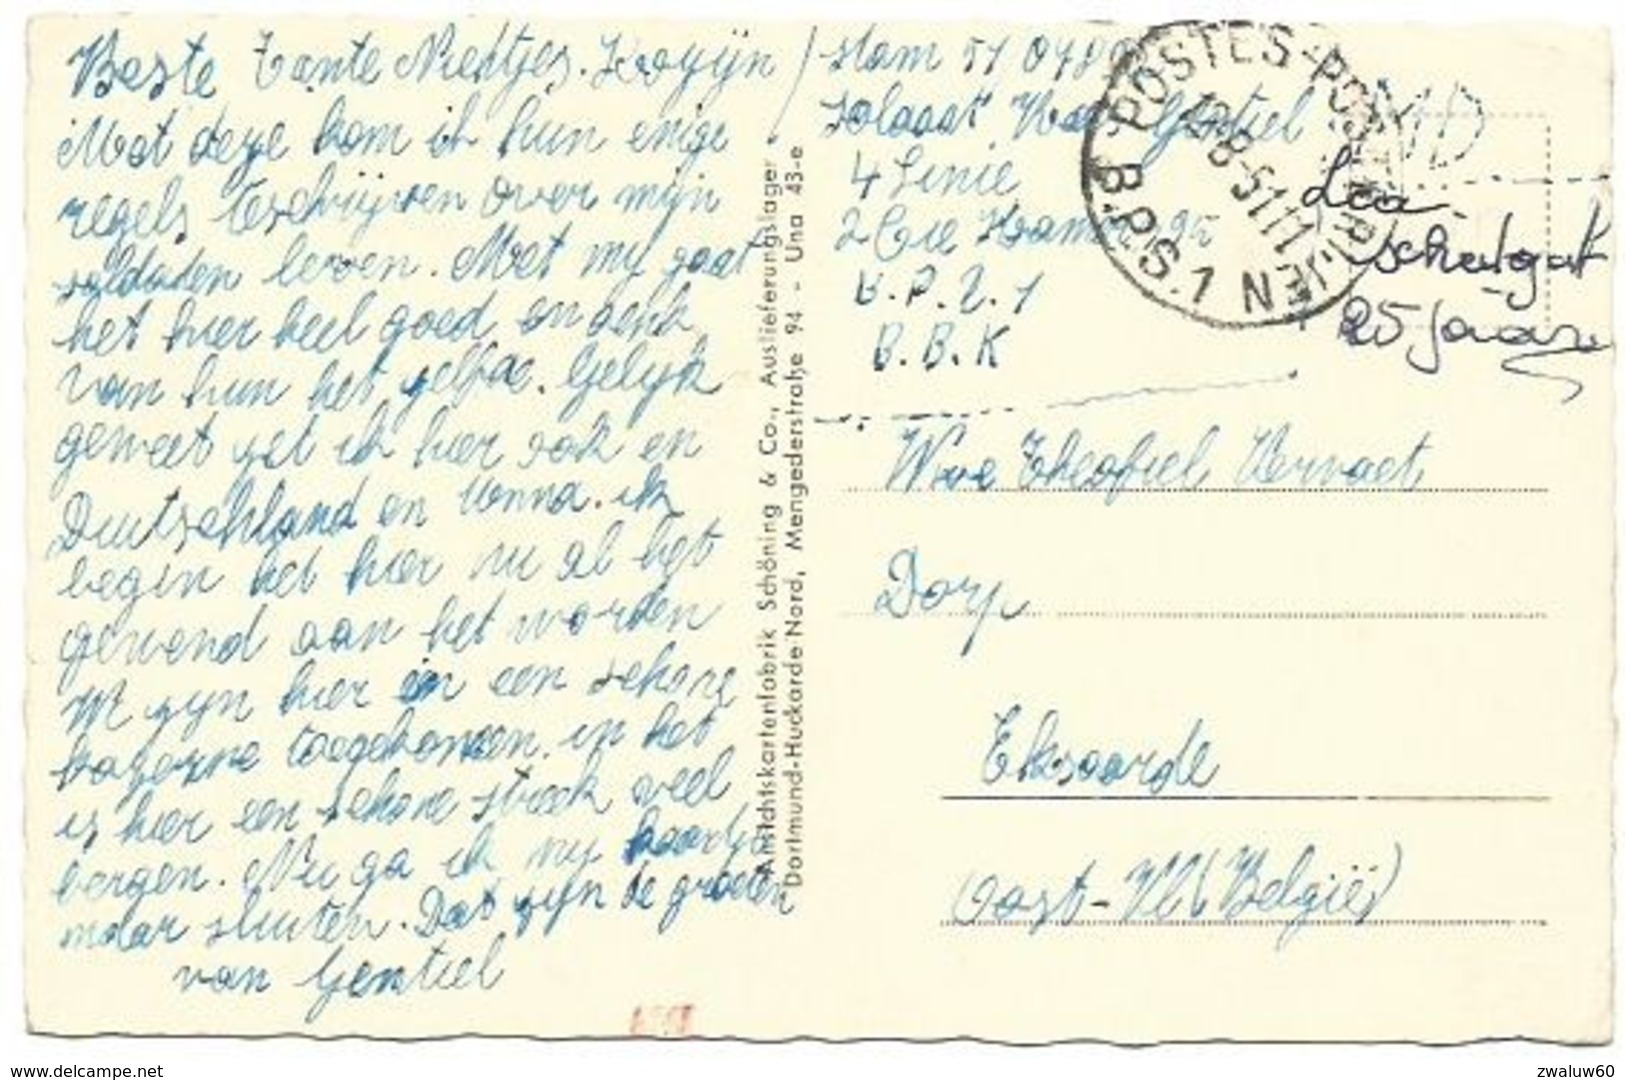 Beste Tante Niehtjes. Kozyn
Met deze kom ik hun enige
regels teschrijven over mijn
soldaten leven. Met my gaat
het hier heel goed en denk
van hun het zelfde. Gelyk
geweet zit ik hier ook en
Duitschland en Unna. ik
begin het hier nu al bet
gewend aan het worden
W zyn hier in een schone
kazerne toegekomen. in het
is hier een schone streek veel
bergen. Nu ga ik my kaartje
maar sluiten. Dat zyn de groeten
van Gentiel
Ansichtskartenfabrik Schöning & Co., Auslieferungslager
Dortmund-Huckarde Nord, Mengederstraße 94 - Una 43-e
Stam 51
Soldaat Gentiel
4 Linie
2 Cie
B.P.S. 1
B.B.K
POSTES-POSTERIJEN
B.P.S. 1
-8-51 11
Wwe Theofiel Vervaet
Dorp
Eksaarde
(Oost-Vl (België)
25 jaar
www.delcampe.net
zwaluw60